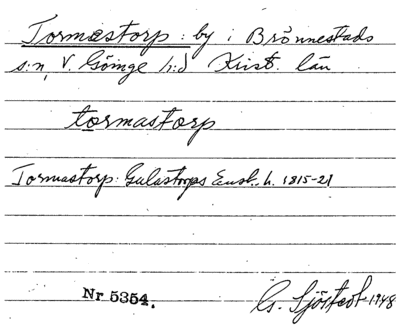 Tormastorp: by i Brönnestads
s:n, V. Göinge h:d Krist. län
tormastorp
Tormastorp: Gulastorps Ensk. h. 1815-21
Nr 5354.
G. Sjöstedt 1948